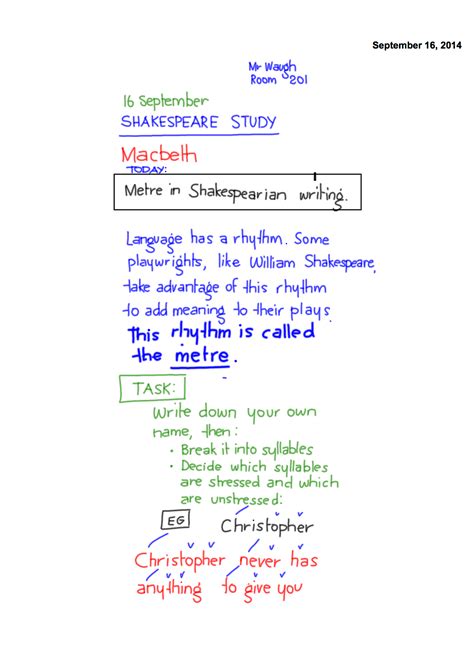 September 16, 2014
Mr Waugh
Room 201
16 September
SHAKESPEARE STUDY
Macbeth
TODAY:
Metre in Shakespearian writing.
Language has a rhythm. Some
playwrights, like William Shakespeare,
take advantage of this rhythm
to add meaning to their plays.
This rhythm is called
the metre.
TASK:
Write down your own
name, then:
• Break it into syllables
• Decide which syllables
are stressed and which
are unstressed:
EG Christopher
Christopher never has
anything to give you